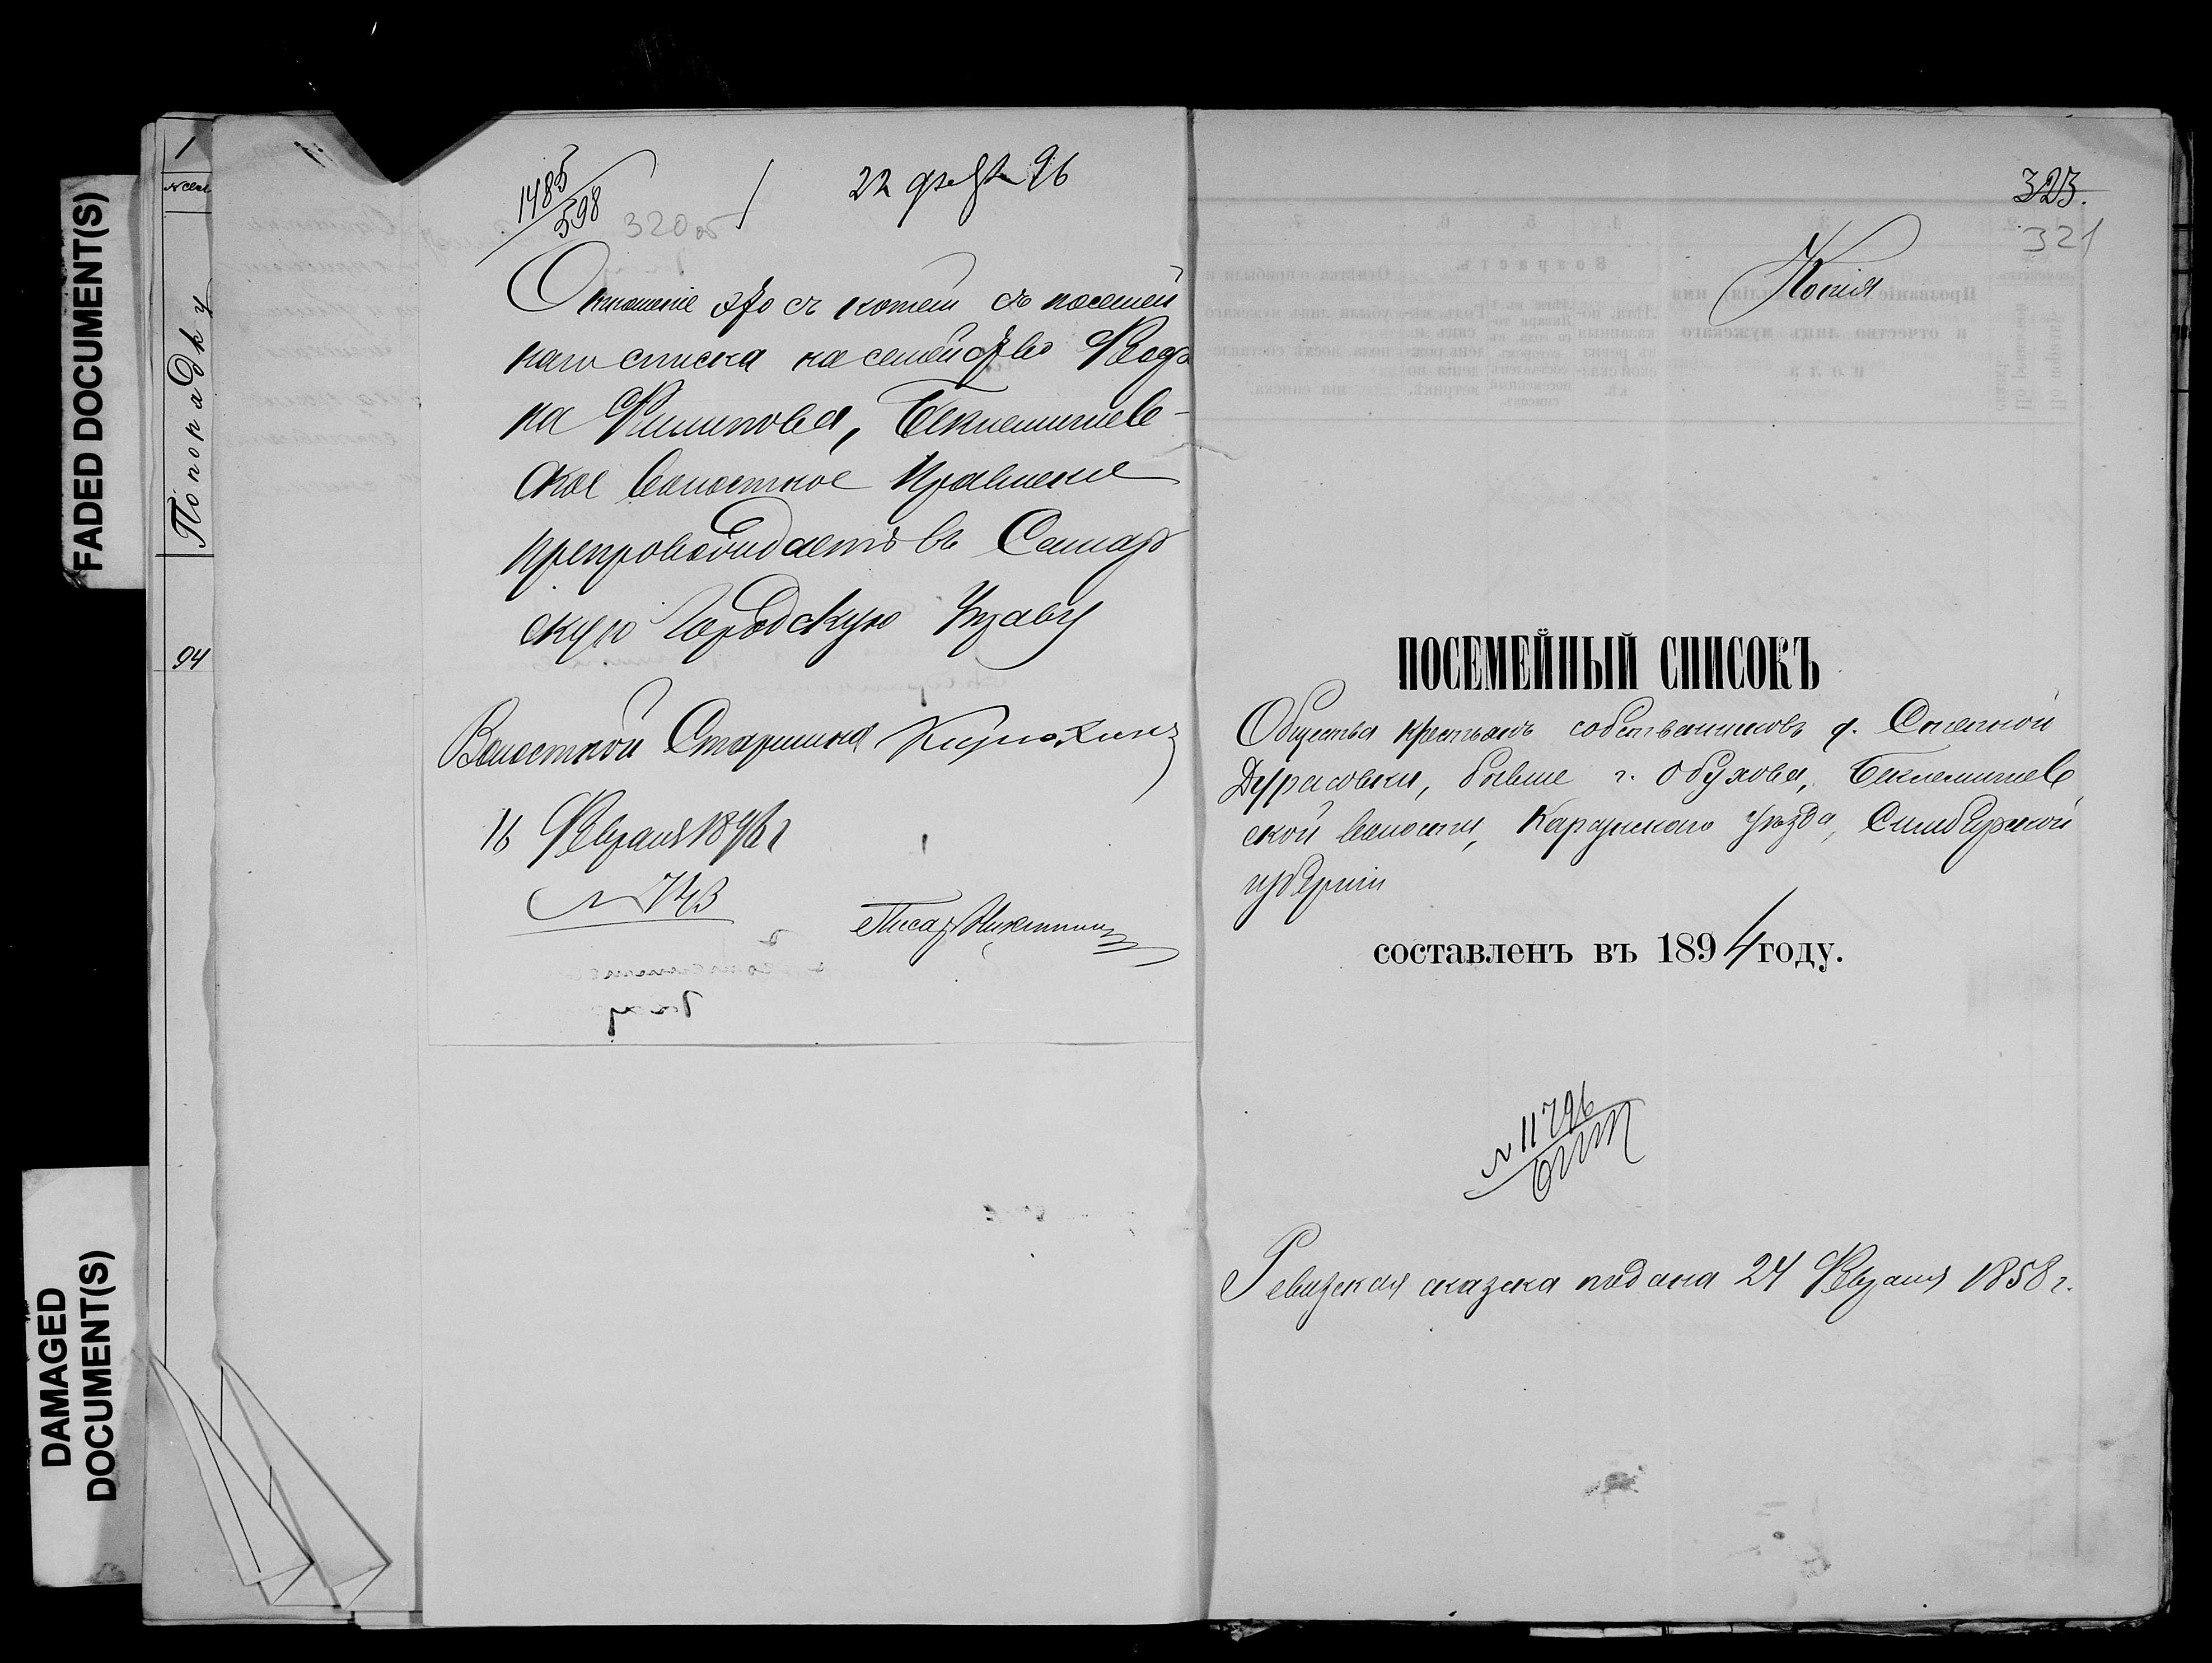 FADED DOCUMENT(S)
DAMAGED
DOCUMENT(S)
1
По порядку
94
1485
598
320 об
22 февр 96
Отношение это съ копіей съ посемей
наго списка на семейство Федо
ка Филипова, Беклемишев-
ское волостное Правленіе
препровождаетъ въ Самар
скую Городскую Управу
Волостной Старшина
16 Февраля 1896 г
№ 743
Писарь Никитинъ
323.
321
Копія
ПОСЕМЕЙНЫЙ СПИСОКЪ
Общества крестьянъ собственниковъ д. Степной
Дурасовки, бывше г. Обухова, Беклемишев
ской волости, Карсунскаго уѣзда, Симбирской
губерніи
составленъ въ 1894 году.
№ 11796
Ревизская сказка подана 24 Февраля 1858 г.